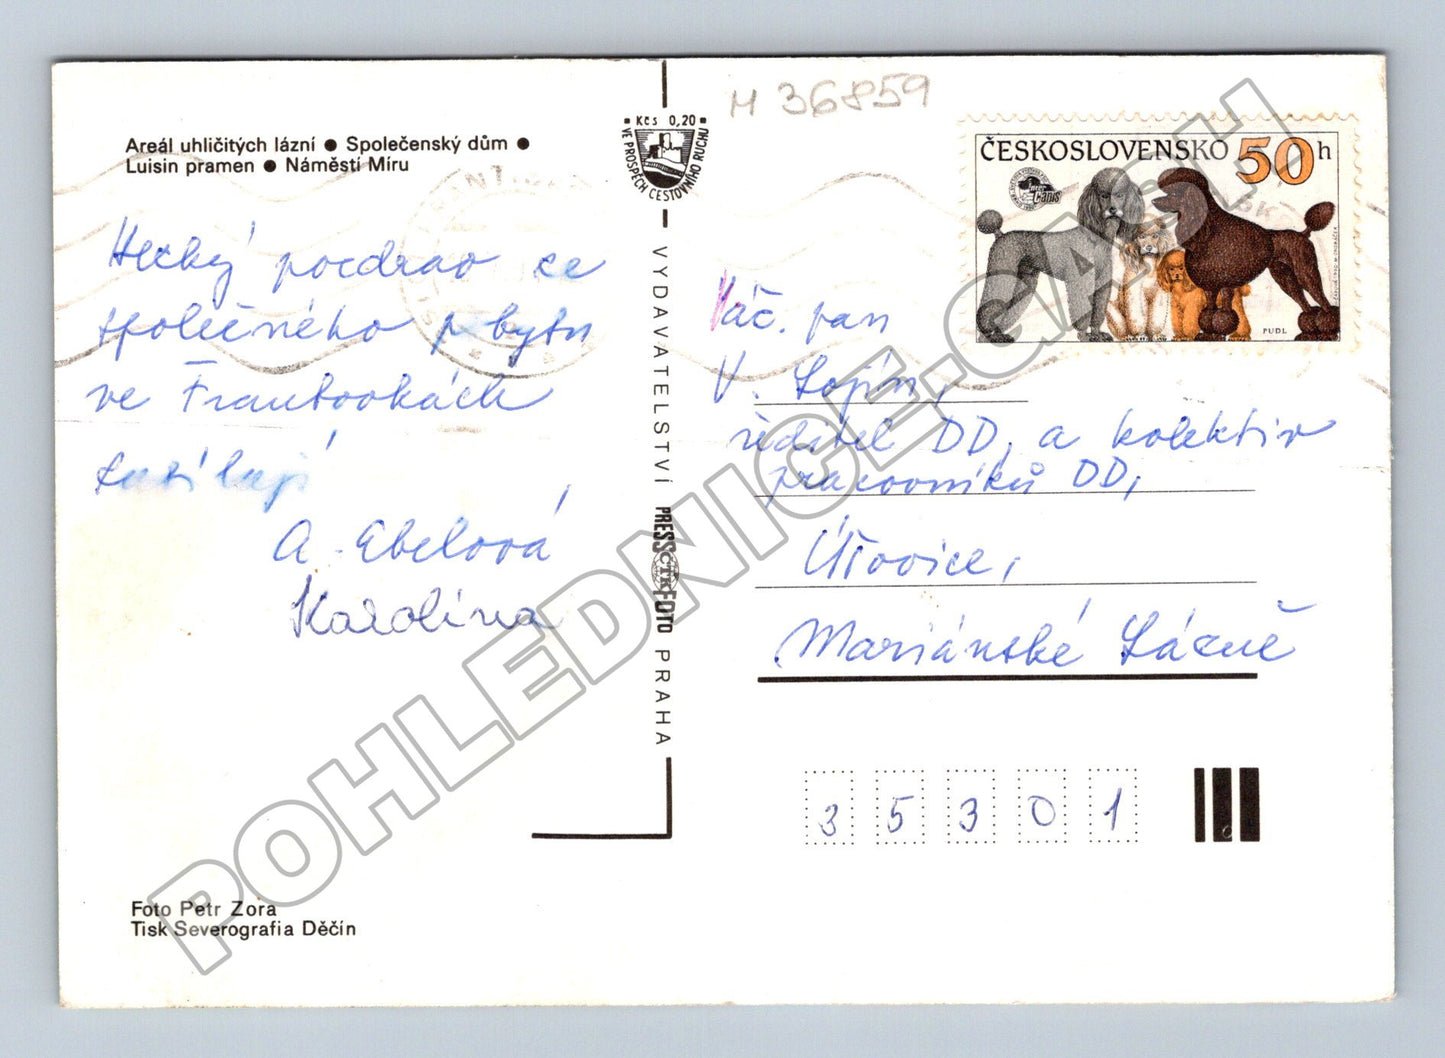 Areál uhličitých lázní ● Společenský dům ●
Luisin pramen ● Náměstí Míru
Hezký pozdrav ze
společného pobytu
ve Frantovkách
zasílají
A. Ebelová
Karolína
Foto Petr Zora
Tisk Severografia Děčín
Kčs 0,20
VE PROSPĚCH CESTOVNÍHO RUCHU
VYDAVATELSTVÍ PRESSFOTO PRAHA
ČTK
M 36859
ČESKOSLOVENSKO 50 h
Inter Canis
PUDL
Váč. pan
V. Lojín,
ředitel DD, a kolektiv
pracovníků DD,
Úšovice,
Mariánské Lázně
35301
POHLEDNICE.CASH